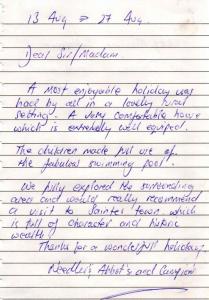 13 Aug ⇒ 27 Aug
Dear Sir/Madam
A most enjoyable holiday was
had by all in a lovely rural
setting. A very comfortable house
which is extremely well equiped.
The children made full use of
the fabulous swimming pool.
We fully explored the surrounding
area and would really recommend
a visit to Saintes town which
is full of character and historic
wealth
Thanks for a wonderful holiday
Needler's, Abbot's and